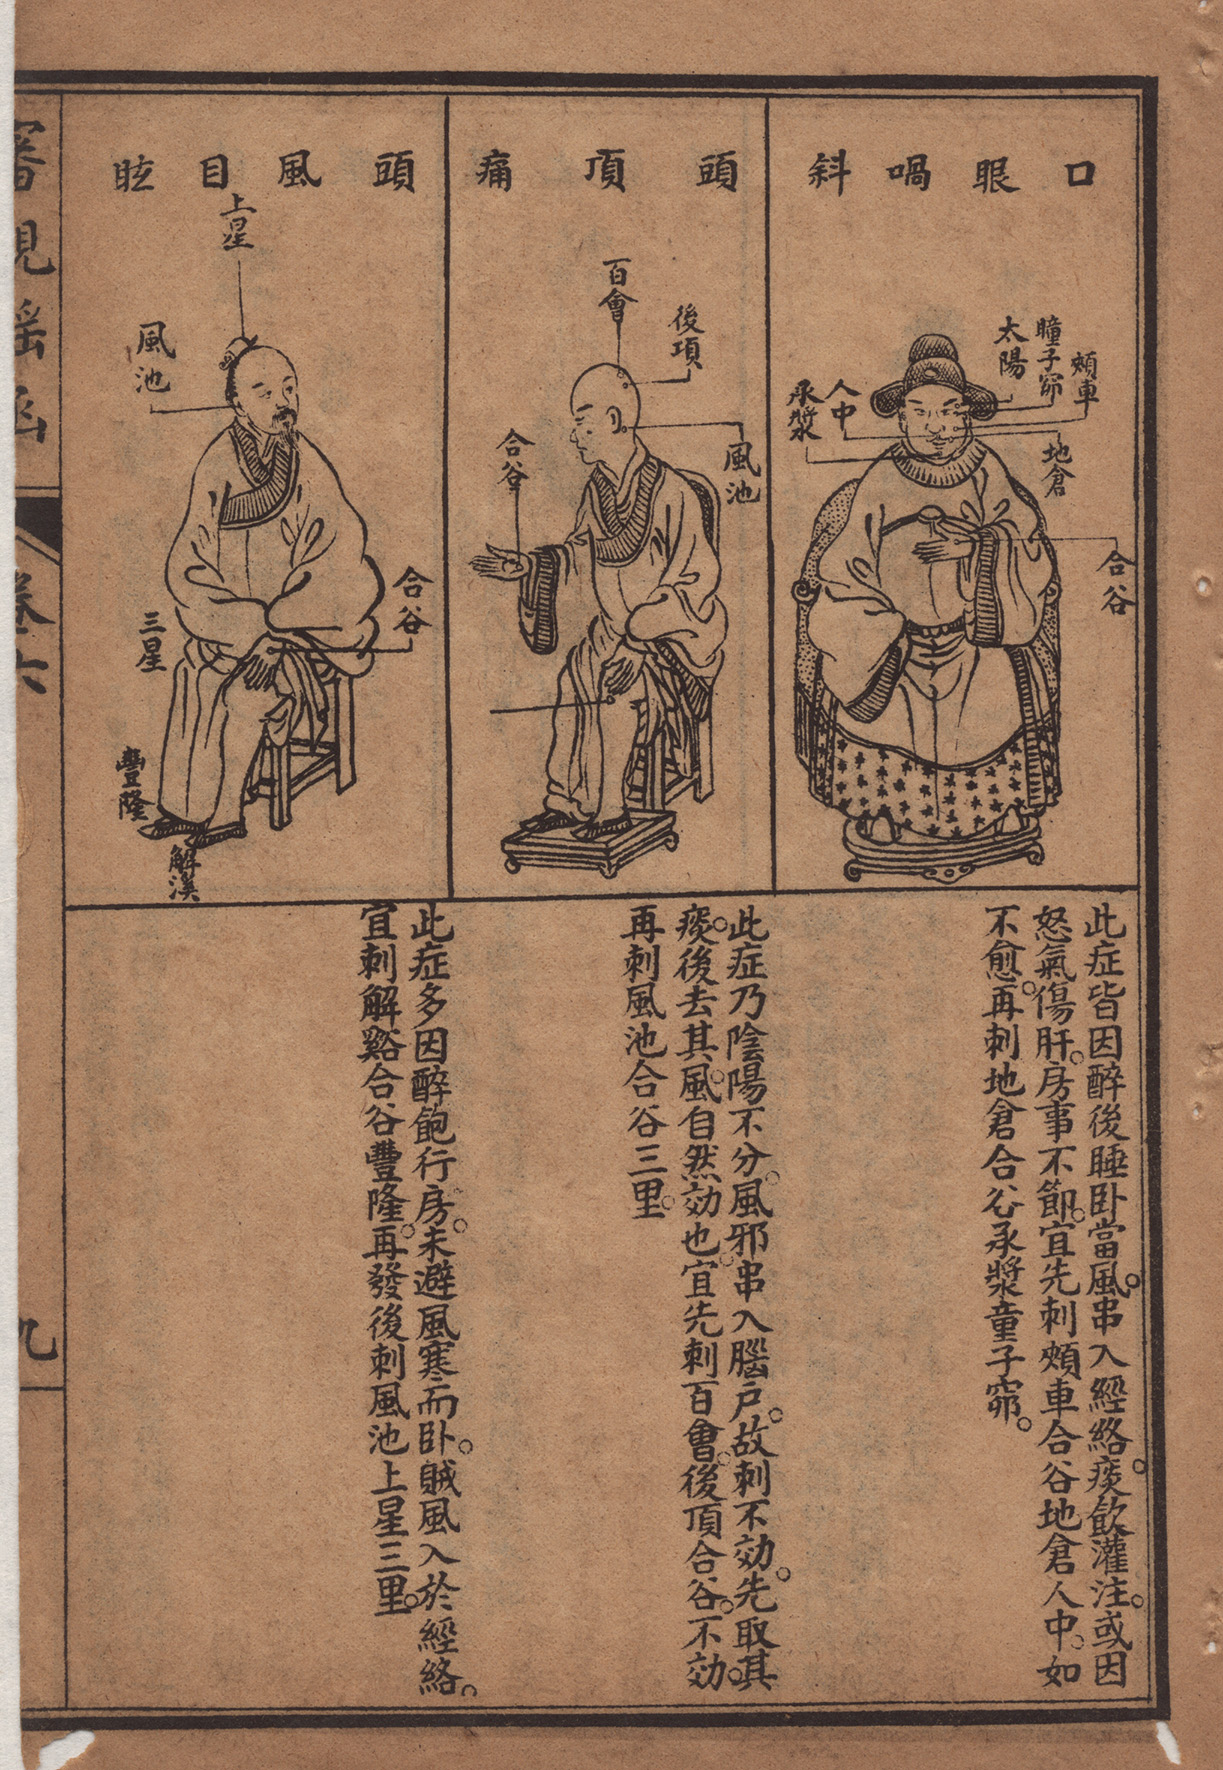 口眼喎斜
頰車
瞳子窌
太陽
人中
承漿
地倉
合谷
此症皆因醉後睡卧當風。串入經絡。痰飲灌注。或因
怒氣傷肝。房事不節。宜先刺頰車合谷地倉人中。如
不愈。再刺地倉合谷承漿童子窌。
頭頂痛
百會
後項
風池
合谷
此症乃陰陽不分。風邪串入腦户。故刺不効。先取其
痰。後去其風。自然効也。宜先刺百會。後頂合谷。不効。
再刺風池合谷三里。
頭風目眩
上星
風池
合谷
三星
豐隆
解溪
此症多因醉飽行房。未避風寒而卧。賊風入於經絡。
宜刺解谿合谷豐隆。再發後刺風池上星三里。
審視瑤函
卷六
九